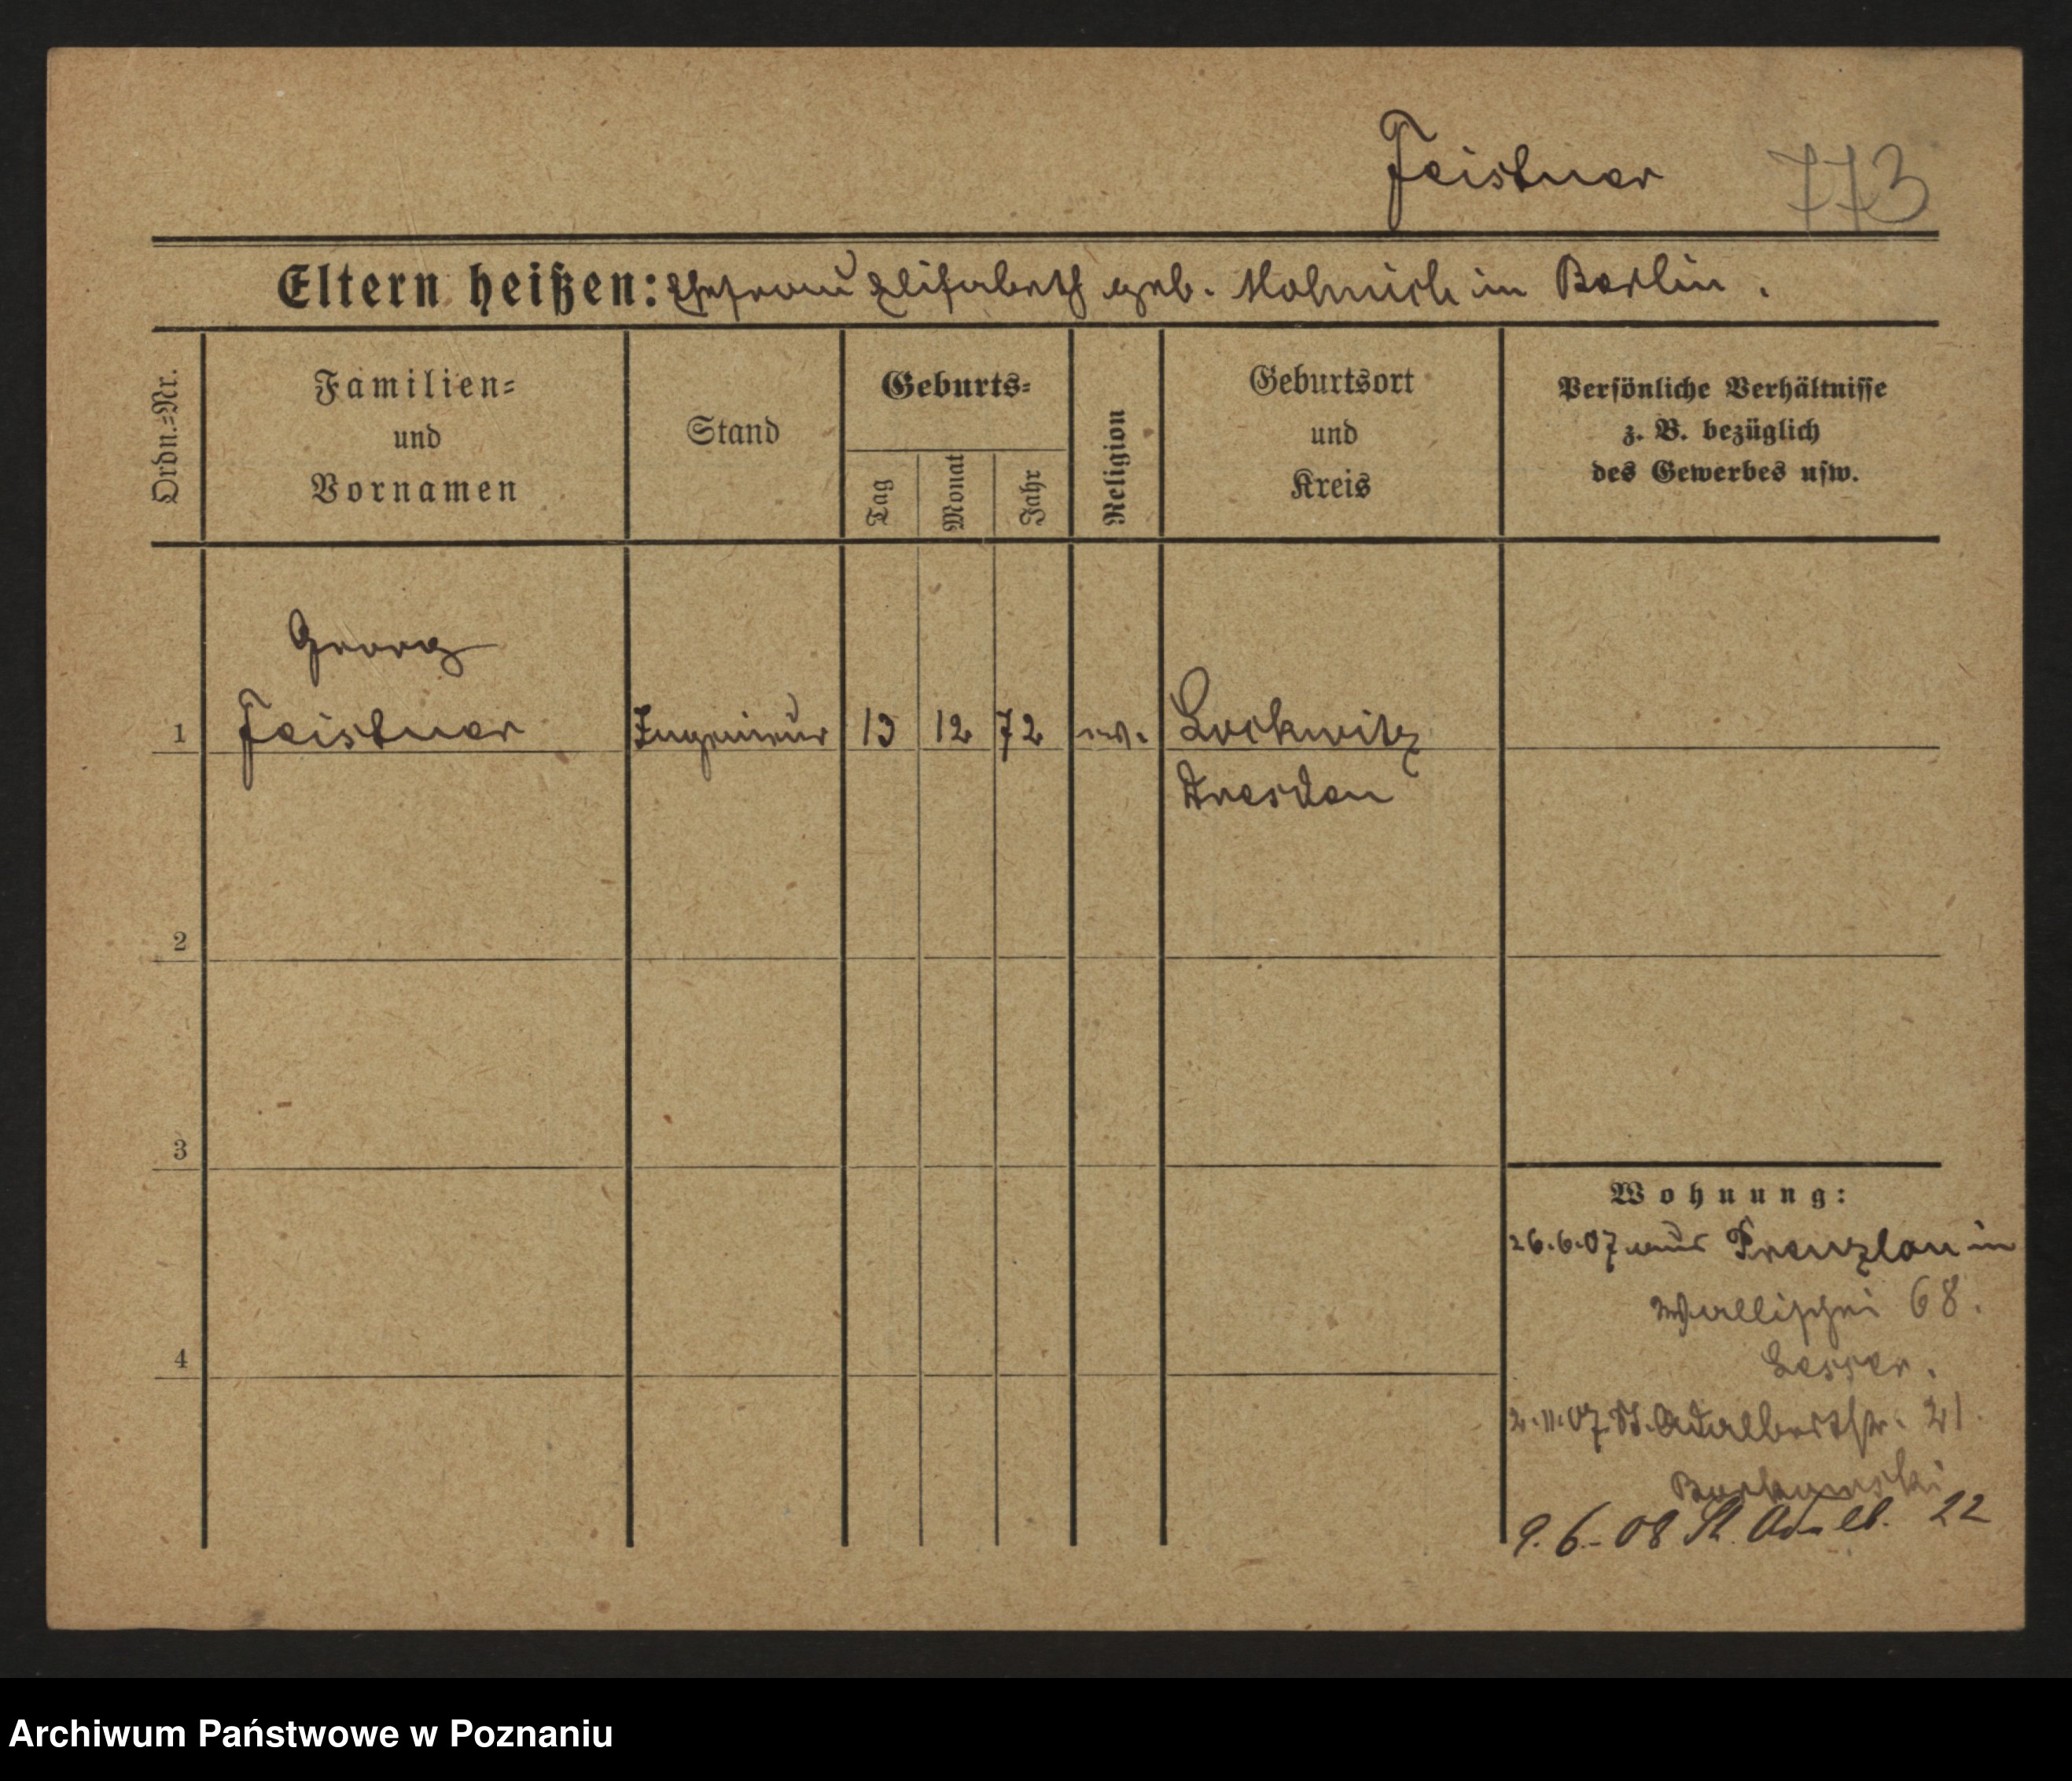 Feistner 773
Eltern heißen: Ehefrau Elisabeth geb. in Berlin.
Ordn.=Nr.
Familien=
und
Vornamen
Stand
Geburts=
Tag
Monat
Jahr
Religion
Geburtsort
und
Kreis
Persönliche Verhältnisse
z. B. bezüglich
des Gewerbes usw.
Georg
1 Feistner Ingenieur 13 12 72 ev. Lockwitz
Dresden
2
3
4
Wohnung:
26.6.07 aus Prenzlau in
Wallischei 68.
Lesser.
2.11.07. St. Adalbertstr. 21.
9.6.-08 St. Adalb. 22
Archiwum Państwowe w Poznaniu